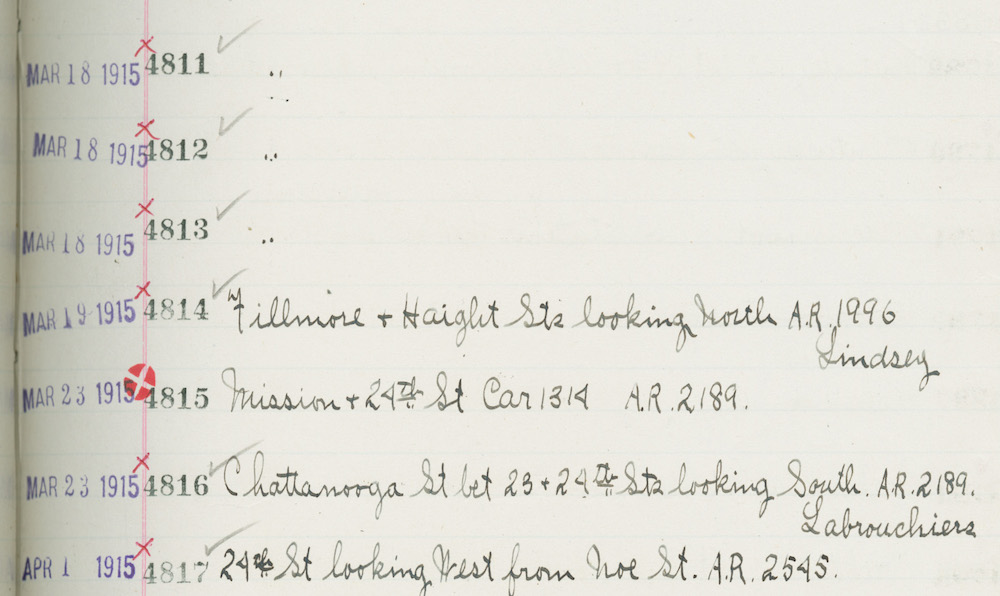 MAR 18 1915 4811 〃
MAR 18 1915 4812 〃
MAR 18 1915 4813 〃
MAR 19 1915 4814 Fillmore + Haight Sts looking North A.R. 1996
Lindsey
MAR 23 1915 4815 Mission + 24th St Car 1314 A.R. 2189.
MAR 23 1915 4816 Chattanooga St bet 23 + 24th Sts looking South. A.R. 2189.
Labrouchiers
APR 1 1915 4817 24th St looking West from Noe St. A.R. 2545.